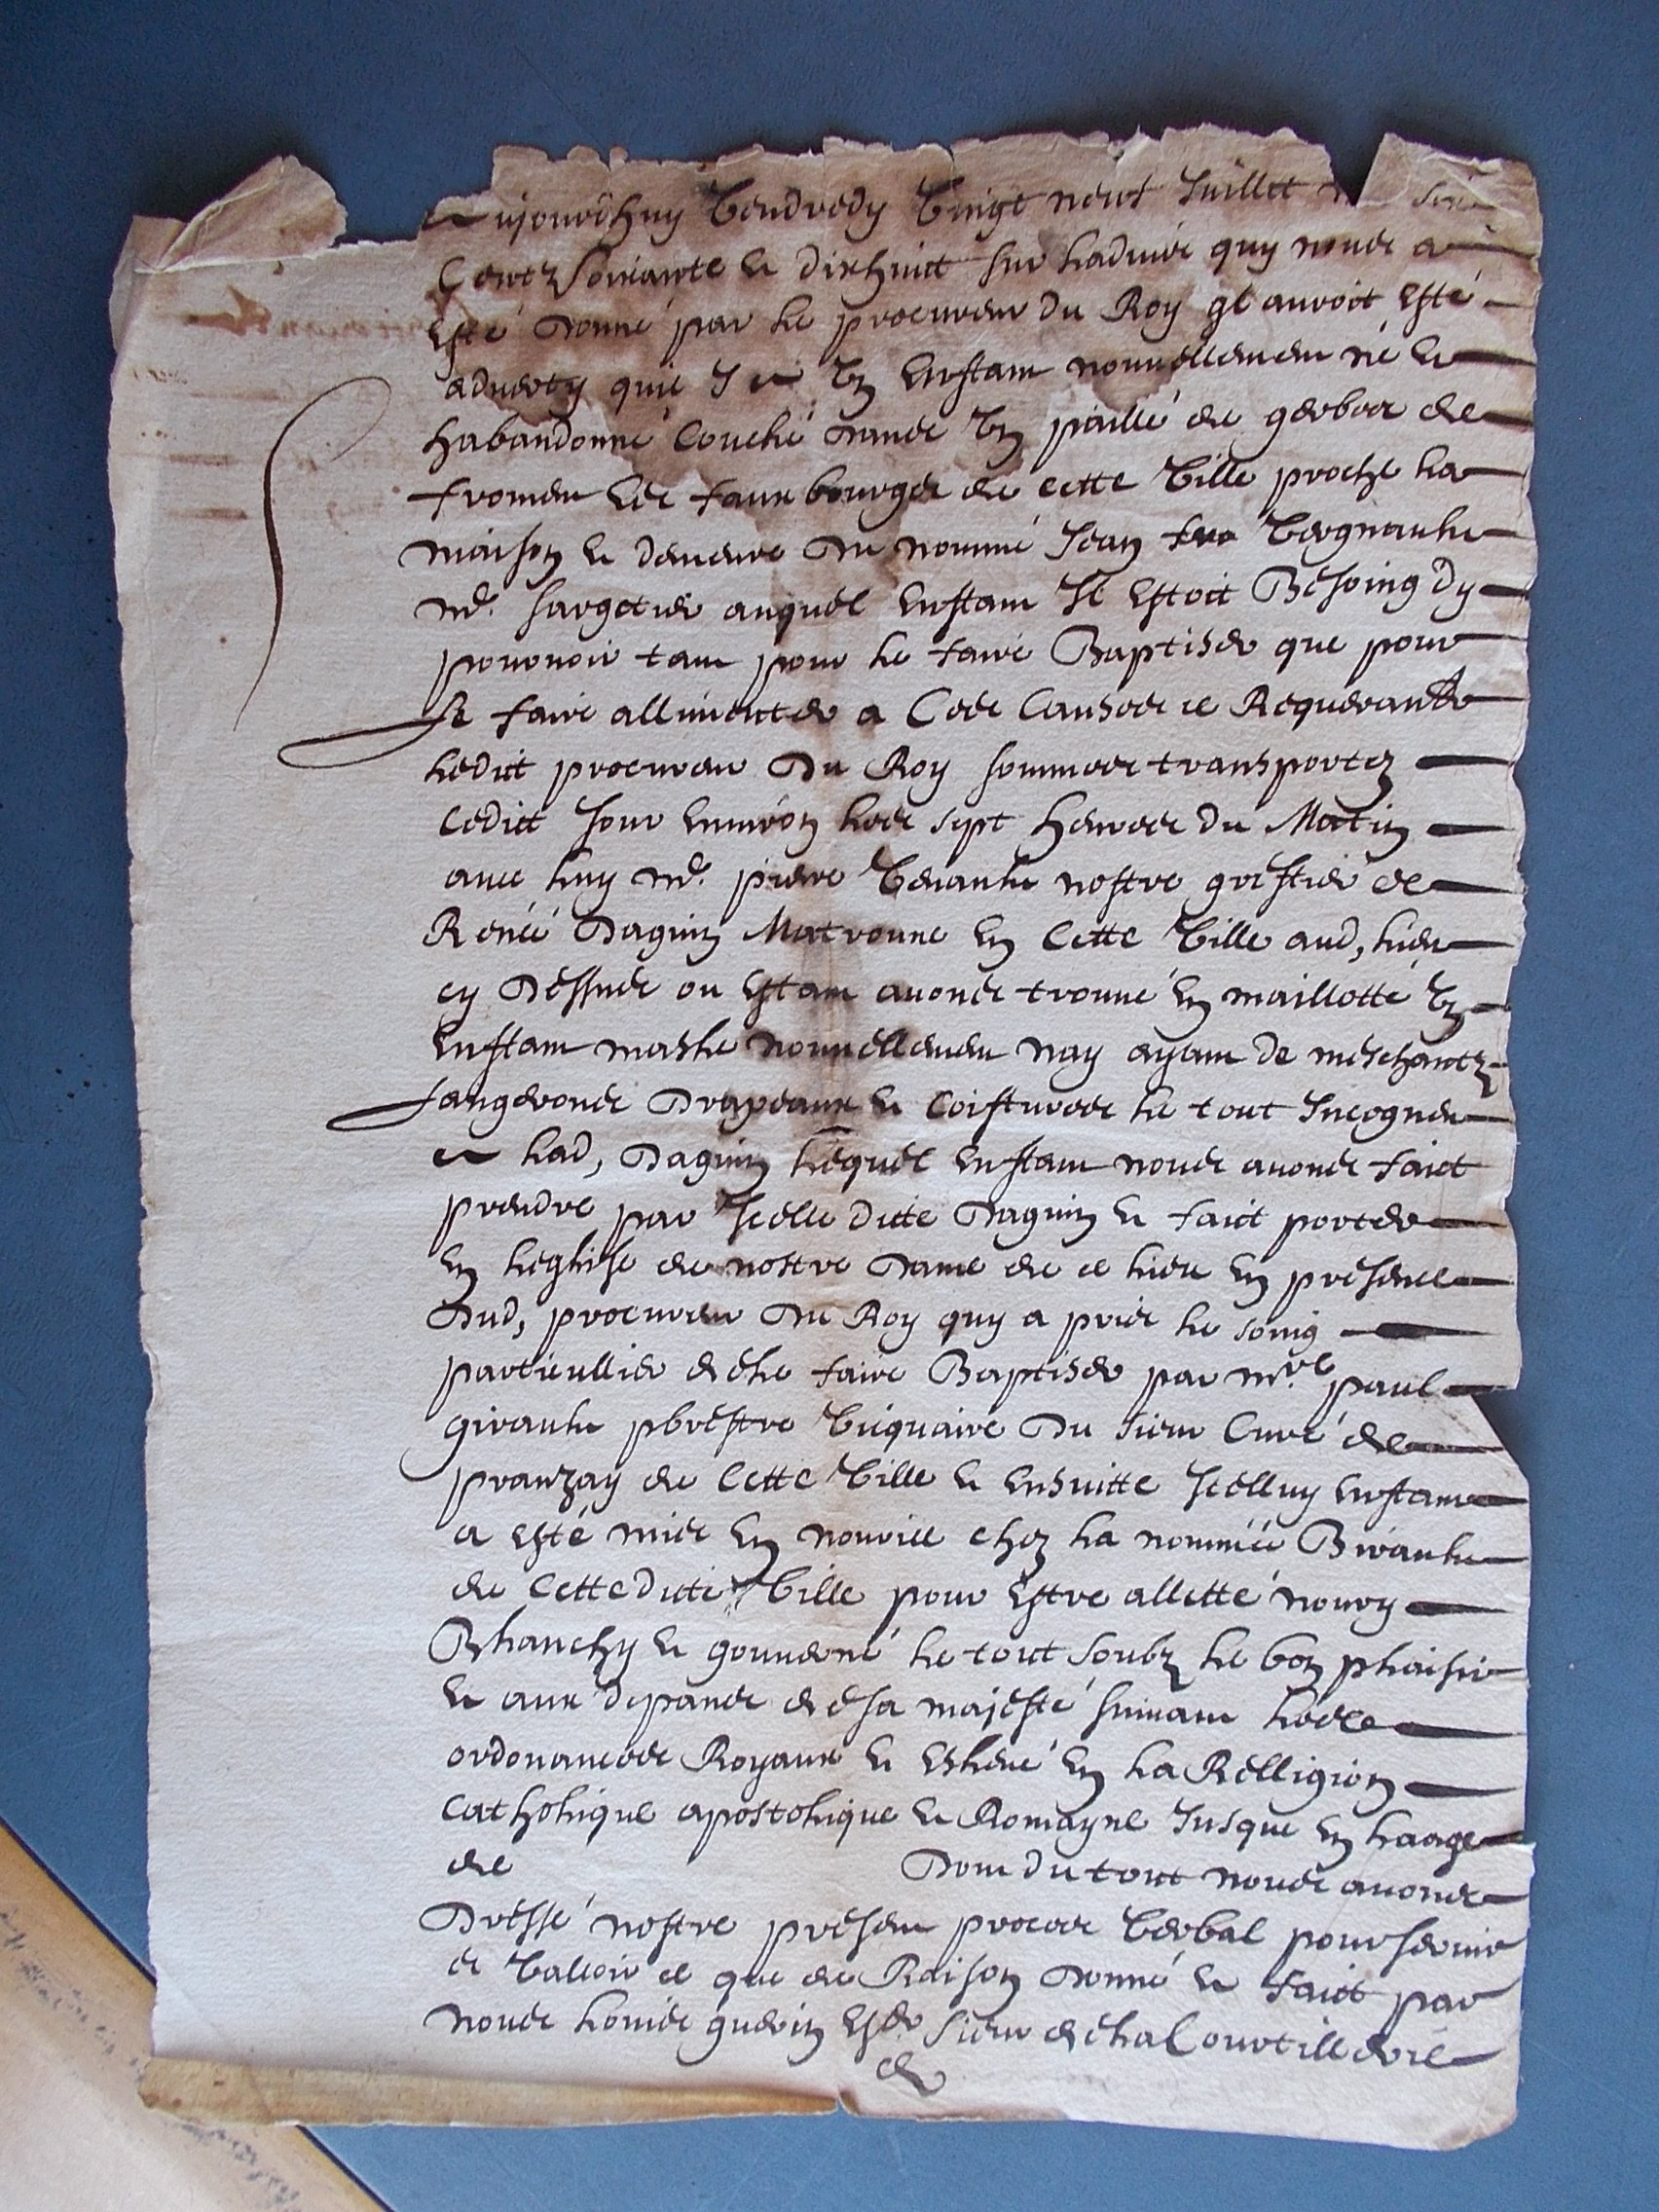 Aujourdhuy Vendredy Vingt neuf Juillet
Centz Soixante et dixhuict sur ladvis quy nous a
esté donné par le procureur du Roy ql auroit esté
adverty quil y a Un Enffant nouvellement né et
habandonné Couché dans Un paillé de gerbes de
fromen es fauxbourgs de cette Ville proche la
maison et demeure du nommé Jean Vergnault
md. sargetier auquel Enffant Il estoit Besoing dy
pourvoir tant pour le faire Baptiser que pour
le faire allimenter a Ces Causes et Requerant
ledict procureur du Roy sommes transportez
cedict Jour environ les sept heures du Matin
avec luy Me. pierre Venault nostre greffier et
Renée daguin Matronne En Cette Ville aud, lieu
cy dessus ou estant avons trouvé En maillotté Un
Enffant masle nouvellement nay ayant de meschantz
langerons drapeaux et Coiffures le tout Incogneu
a lad, daguin lequel Enffant nous avons faict
prendre par Icelle ditte daguin et faict porter
En leglise de nostre dame de ce lieu En presence
dud, procureur du Roy quy a pris le soing
particullier de le faire Baptiser par mre. paul
girault pbrestre Vicquaire du sieur Curé de
pranzay de Cette Ville et Ensuitte Icelluy Enffant
a esté mis En nourice chez la nommée Birault
de Cetteditte Ville pour Estre alletté noury
Blanchy et gouverné le tout soubz le bon plaisir
et aux depans de sa majesté suivant les
ordonances Royaux et Eslevé En la Relligion
Catholique apostolique et Romayne Jusque En laage
de Dont du tout nous avons
dressé nostre present proces Verbal pour servir
et Valloir ce que de Raison donné et faict par
nous Louis guerin Eser Sieur de la Courtillerie
et